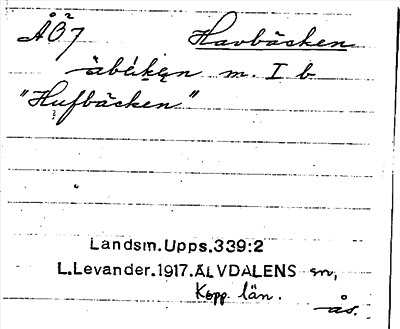 ÅÖ²7 Havbäcken
m. I b
"Hufbäcken"
Landsm.Upps.339:2
L.Levander.1917.ÄLVDALENS sn,
Kopp. län.
ås.